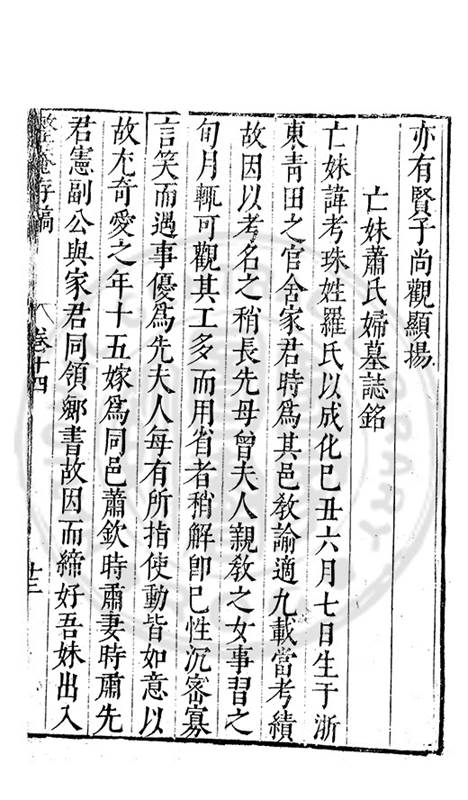 亦有賢子尚觀顯揚
亡妹蕭氏婦墓誌銘
亡妹諱考珠姓羅氏以成化己丑六月七日生于浙
東青田之官舍家君時為其邑教諭適九載當考績
故因以考名之稍長先母曾夫人親教之女事習之
旬月輒可觀其工多而用省者稍解卽已性沉密寡
言笑而遇事優為先夫人每有所指使動皆如意以
故尤奇愛之年十五嫁為同邑蕭欽時肅妻時肅先
君憲副公與家君同領鄉書故因而締好吾妹出入
整菴存稿
卷十四
十三